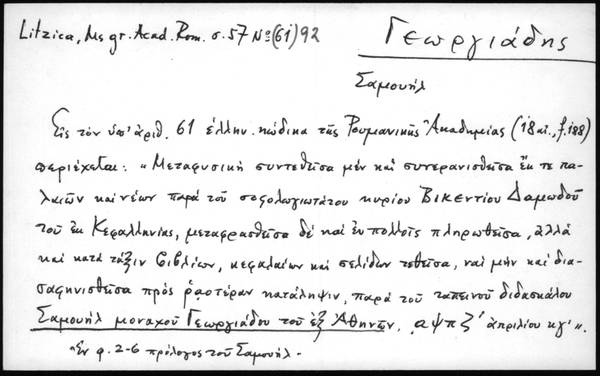 Litzica, Ms gr. Acad. Rom. σ. 57 No (61) 92
Γεωργιάδης
Σαμουήλ
Εἰς τὸν ὑπ' ἀριθ. 61 ἑλλην. κώδικα τῆς Ρουμανικῆς Ἀκαδημίας (18 αἰ., f. 188)
περιέχεται: «Μεταφυσικὴ συντεθεῖσα μὲν καὶ συνερανισθεῖσα ἔκ τε πα-
λαιῶν καὶ νέων παρὰ τοῦ σοφολογιωτάτου κυρίου Βικεντίου Δαμωδοῦ
τοῦ ἐκ Κεφαλληνίας, μεταφρασθεῖσα δὲ καὶ ἐν πολλοῖς πληρωθεῖσα, ἀλλὰ
καὶ κατὰ τάξιν βιβλίων, κεφαλαίων καὶ σελίδων τεθεῖσα, ναὶ μὴν καὶ δια-
σαφηνισθεῖσα πρὸς ῥαοτέραν κατάληψιν, παρὰ τοῦ ταπεινοῦ διδασκάλου
Σαμουὴλ μοναχοῦ Γεωργιάδου τοῦ ἐξ Ἀθηνῶν. αψπζ' ἀπριλίου κγ'».
Ἐν φ. 2-6 πρόλογος τοῦ Σαμουήλ.-